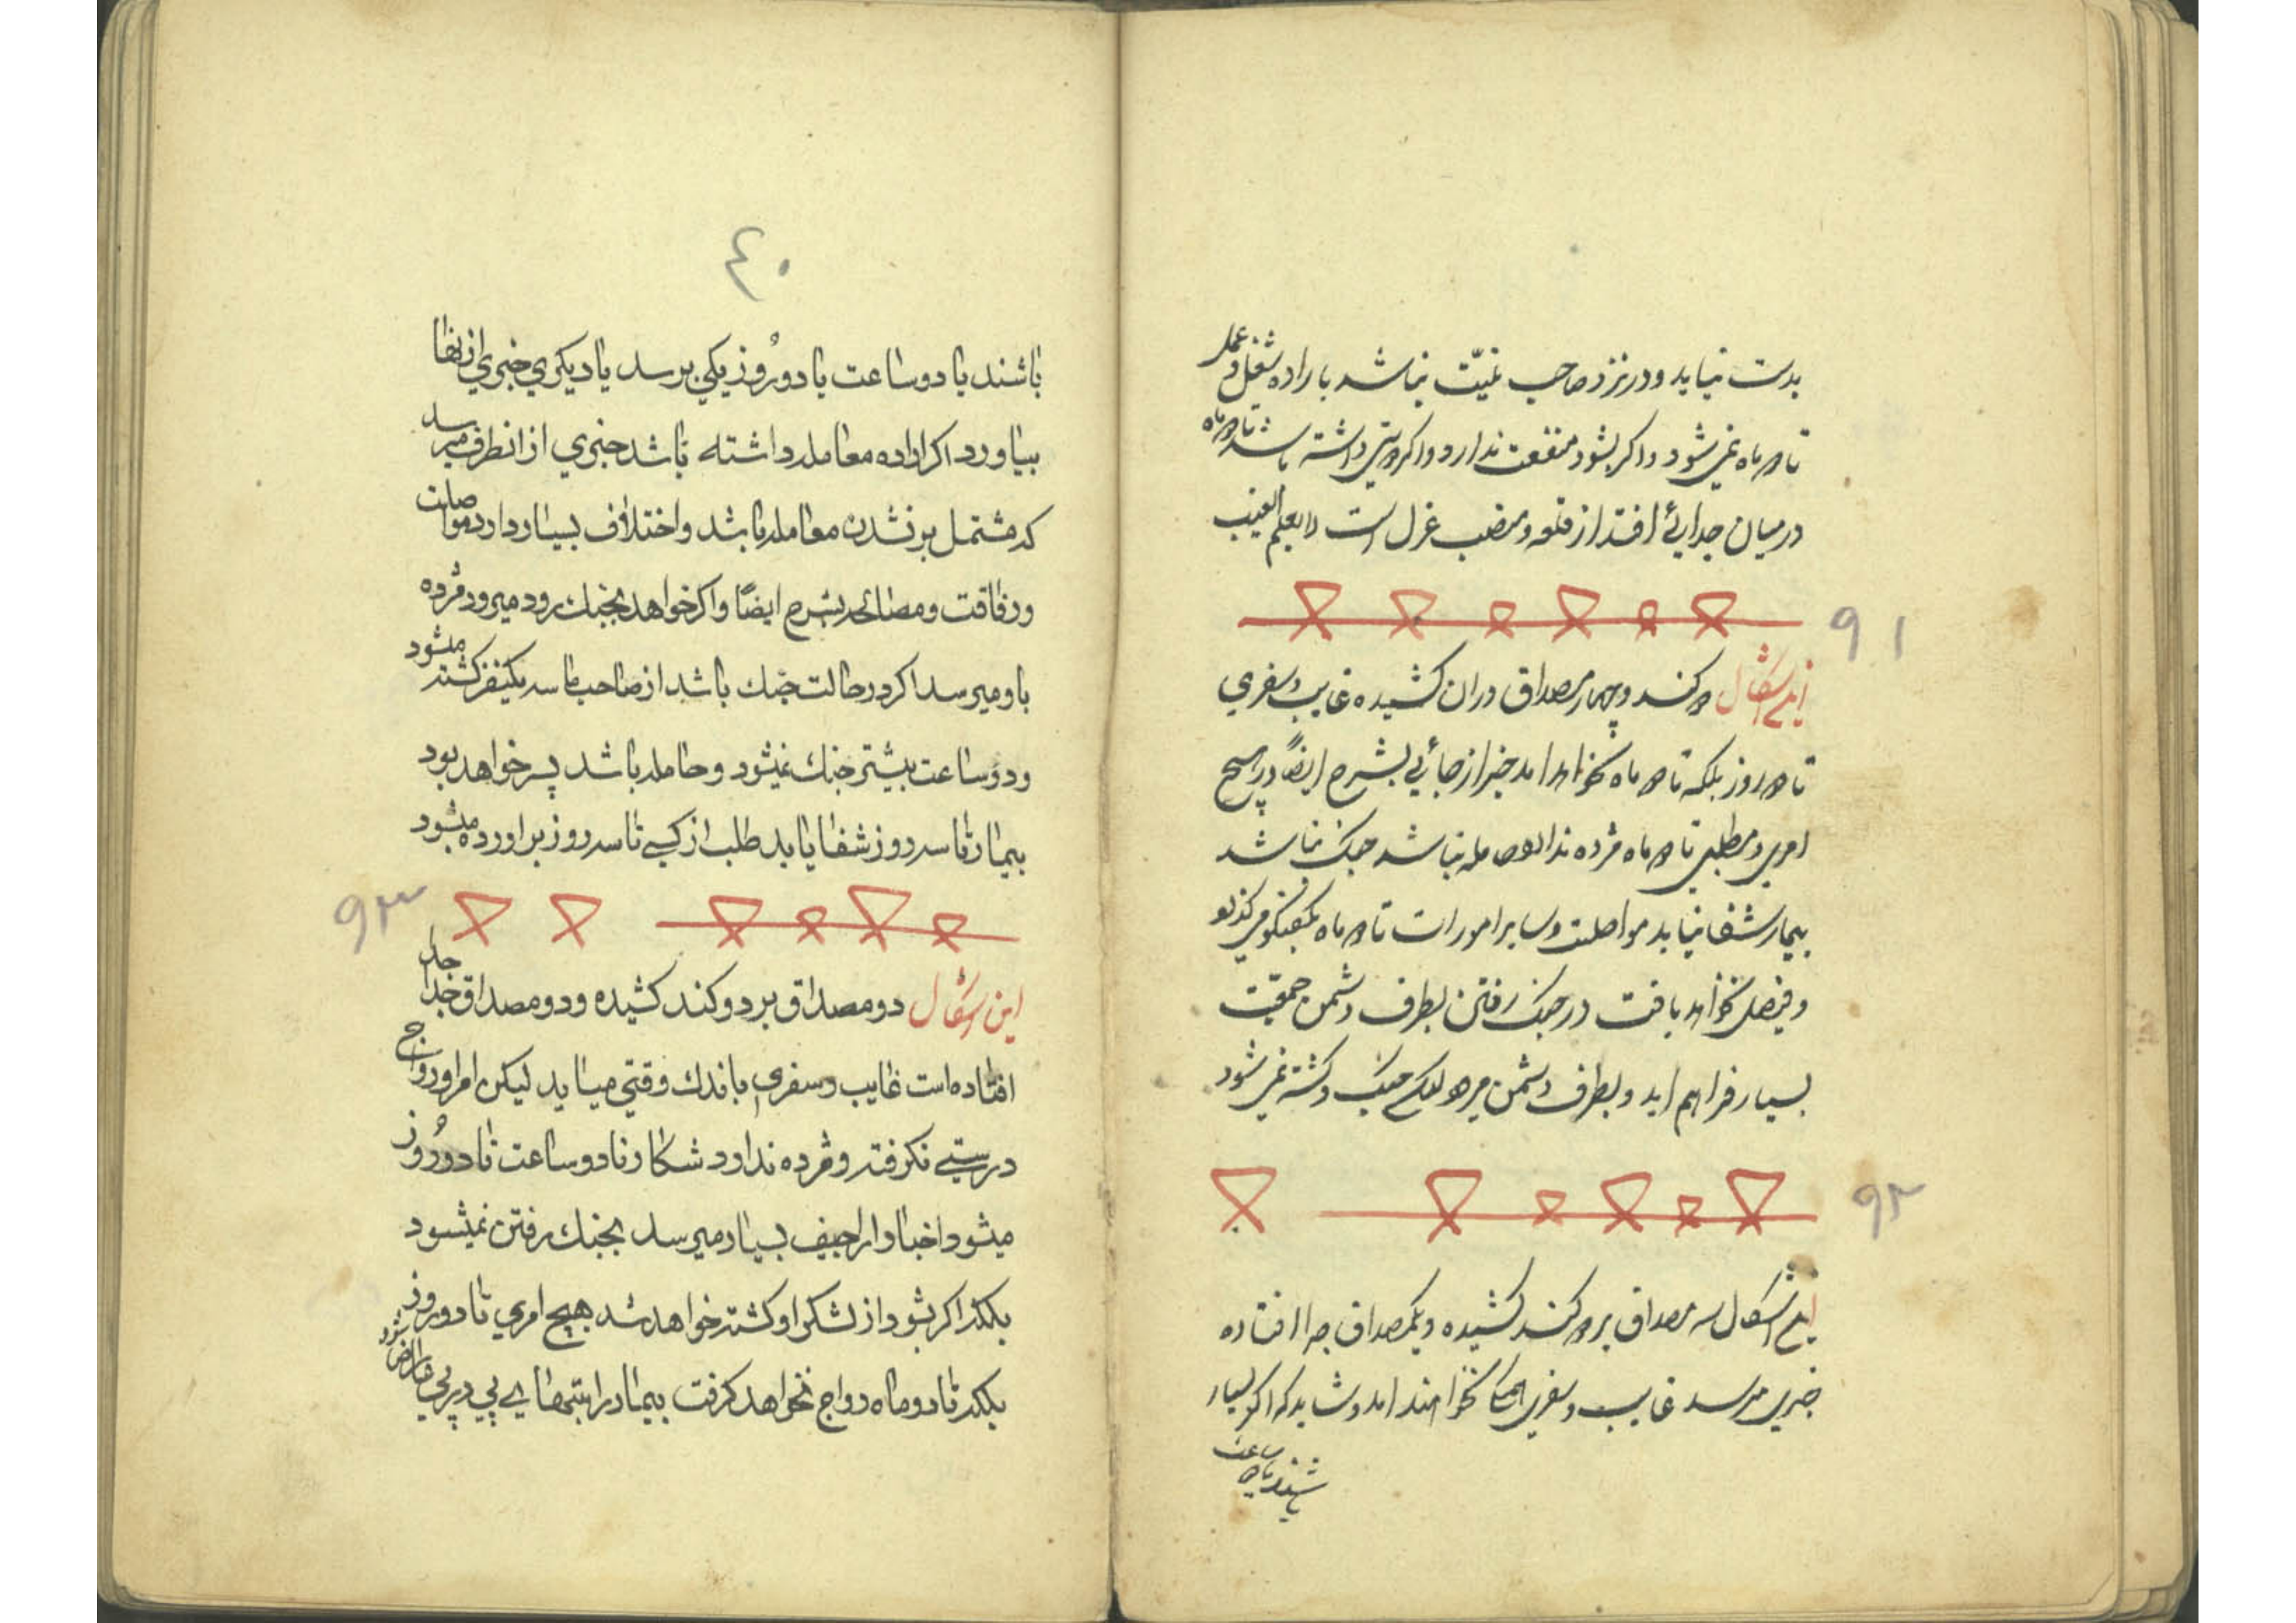 بدست نیاید و در نزد صاحب نیّت نباشد باراده شغل و عمل
تا دو ماه نمی شود و اگر بشود منفعت ندارد و اگر دوستی داشته باشد تا دو ماه
در میان جدایی افتد از قلعه و منصب عزل است لا یعلم الغیب
۹۱
این اشکال دو کند و چهار مصداق دران کشیده غایب و سفری
تا دو روز بلکه تا دو ماه نخواهد امد خبر از جائی بشرح ایضاً در هیچ
امری و مطلبی تا دو ماه مژده ندارد حامله نباشد جنک نباشد
بیمار شفا نیابد مواصلت و سایر امورات تا دو ماه
و فیصل نخواهد یافت در جنک رفتن بطرف دشمن جمعیّت
بسیار فراهم اید و بطرف دشمن میرود لیکن جنک و کشته نمی شود
۹۲
این اشکال سه مصداق بر دو کند کشیده و یکمصداق جدا افتاده
خبری میرسد غایب و سفری نخواهند امد و شاید که اگر بسیار
باشند یا دو ساعت
۴۰
باشند یا دو ساعت یا دو روز یکی برسد یا دیکری خبری از انها
بیاورد اکر اراده معامله داشته باشد خبری از انطرف میرسد
که مشتمل بر نشدن معامله باشد و اختلاف بسیار دارد مواصلت
و رفاقت و مصالحه بشرح ایضاً و اکر خواهد بجنک رود میرود مژده
باو میرسد اکر در حالت جنک باشد از صاحب طاسه یکنفر کشته میشود
و دو ساعت بیشتر جنک نمیشود و حامله باشد پسر خواهد بود
بیمار تا سه روز شفا یابد طلب از کسی تا سه روز براورده میشود
۹۳
این اشکال دو مصداق بر دو کند کشیده و دو مصداق جدا جدا
افتاده است غایب و سفری باندك وقتی میاید لیکن امر او رواج
درستی نکرفته و مژده ندارد شکار تا دو ساعت تا دو روز
میشود اخبار اراجیف بسیار میرسد بجنك رفتن نمیشود
بلکه اکر بشود از لشکر او کشته خواهد شد هیچ امری تا دو روز
بلکه تا دو ماه رواج نخواهد کرفت بیمار را تبهای پی در پی عارض شود